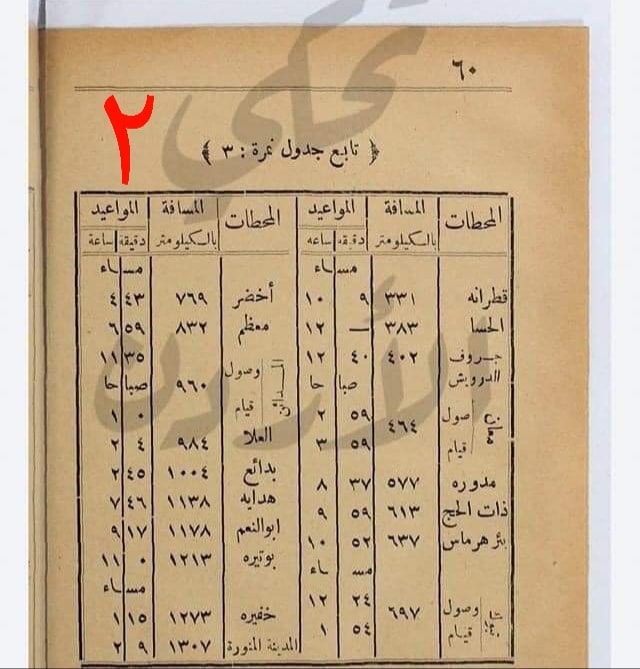 ٦٠
٢
﴿ تابع جدول نمرة : ٣ ﴾
المحطات المسافة بالكيلومتر المواعيد دقيقه ساعه
مساء
قطرانه ٣٣١ ٩ ١٠
الحسا ٣٨٣ — ١٢
جروف الدرويش ٤٠٢ ٤٠ ١٢
صباحا
معان وصول ٤٦٤ ٥٩ ٢
قيام ٥٩ ٣
مدوره ٥٧٧ ٣٧ ٨
ذات الحج ٦١٣ ٥٩ ٩
بئر هرماس ٦٣٧ ٥٢ ١٠
مساء
تبوك وصول ٦٩٧ ٢٤ ١٢
قيام ٥٤ ١
المحطات المسافة بالكيلومتر المواعيد دقيقة ساعة
مساء
أخضر ٧٦٩ ٤٣ ٤
معظم ٨٣٢ ٥٩ ٦
المدائن وصول ٩٦٠ ٣٥ ١١
صباحا
قيام ٠ ١
العلا ٩٨٤ ٤ ٢
بدائع ١٠٠٤ ٤٥ ٢
هدايه ١١٣٨ ٤٦ ٧
ابوالنعم ١١٧٨ ١٧ ٩
بوتيره ١٢١٣ ٠ ١١
مساء
خفيره ١٢٧٣ ١٥ ١
المدينة المنورة ١٣٠٧ ٩ ٢
الأردن